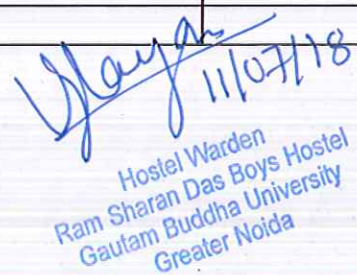 11/07/18
Hostel Warden
Ram Sharan Das Boys Hostel
Gautam Buddha University
Greater Noida